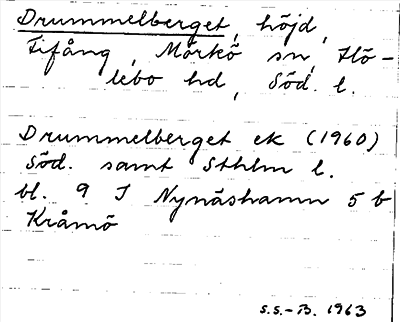 Drummelberget, höjd,
Fifång, Mörkö sn, Hö-
lebo hd, Söd. l.
Drummelberget ek (1960)
Söd. samt Sthlm l.
bl. 9 I Nynäshamn 5 b
Kråmö
S.S.-B. 1963